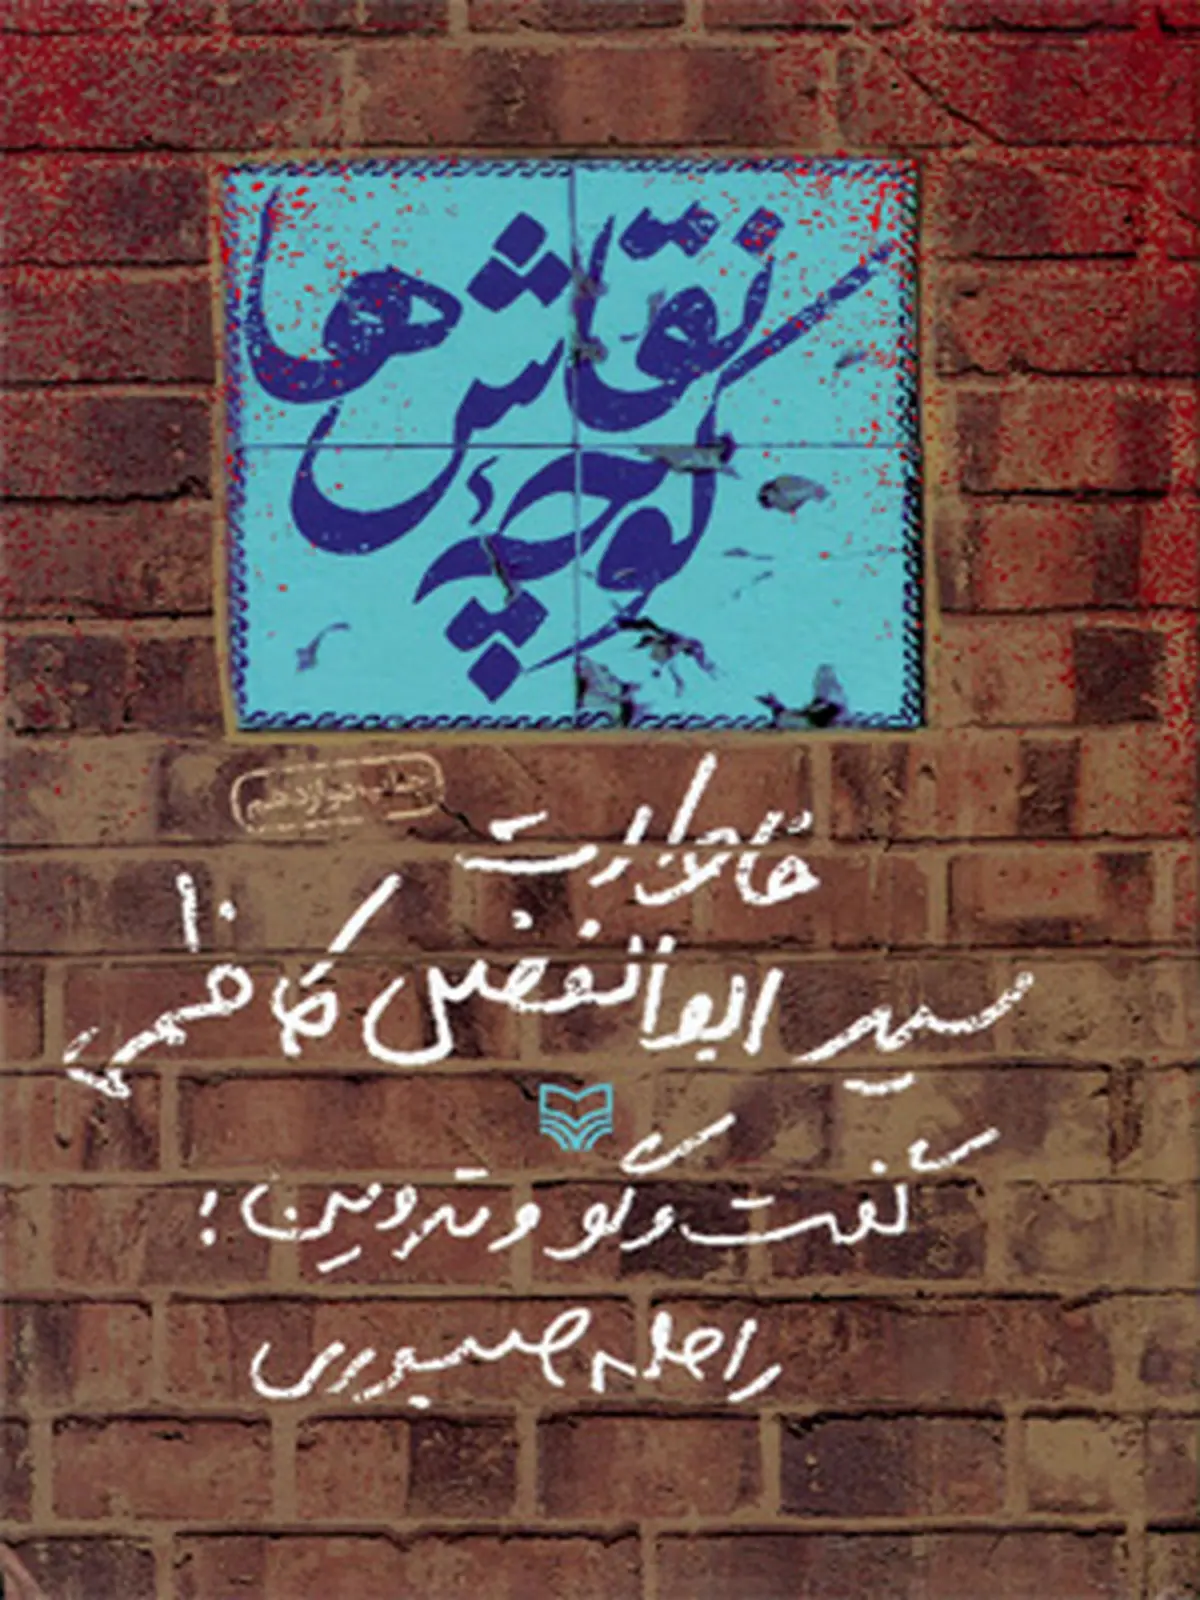 کوچهٔ
نقاش‌ها
چاپ دوازدهم
خاطرات
سید ابوالفضل کاظمی
گفت و گو و تدوین:
راحله صبوری